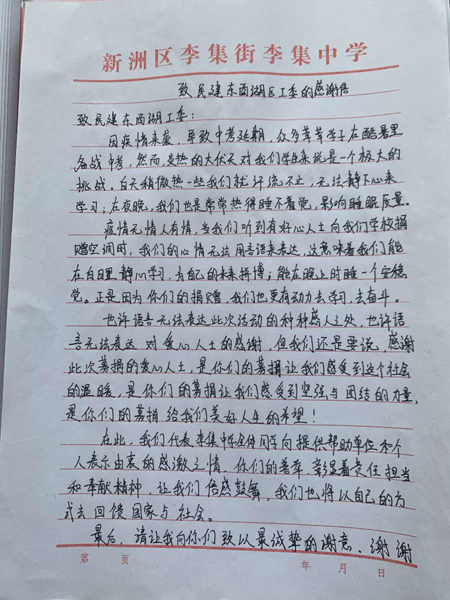 新洲区李集街李集中学
致民建东西湖区工委的感谢信
致民建东西湖工委：
因疫情来袭，导致中考延期，众多莘莘学子在酷暑里
备战中考，然而炎热的大伏天对我们学生来说是一个极大的
挑战。白天稍微热一些我们就汗流不止，无法静下心来
学习；在夜晚，我们也是常常热得睡不着觉，影响睡眠质量。
疫情无情人有情，当我们听到有好心人士向我们学校捐
赠空调时，我们的心情无法用言语来表达，这意味着我们能
在白日里静心学习，为自己的未来拼搏；能在晚上时睡一个安稳
觉。正是因为你们的捐赠，我们也更有动力去学习，去奋斗。
也许语言无法表达此次活动的种种感人之处，也许语
言无法表达对爱心人士的感谢，但我们还是要说，感谢
此次募捐的爱心人士，是你们的募捐让我们感受到这个社会
的温暖，是你们的募捐让我们感受到坚强与团结的力量，
是你们的募捐给我们美好人生的希望！
在此，我们代表李集中学全体同学向提供帮助单位和个
人表示由衷的感激之情，你们的善举彰显着责任担当
和奉献精神，让我们倍感鼓舞，我们也将以自己的方
式去回馈国家与社会。
最后，请让我向你们致以最诚挚的谢意，谢谢
第 页 年 月 日